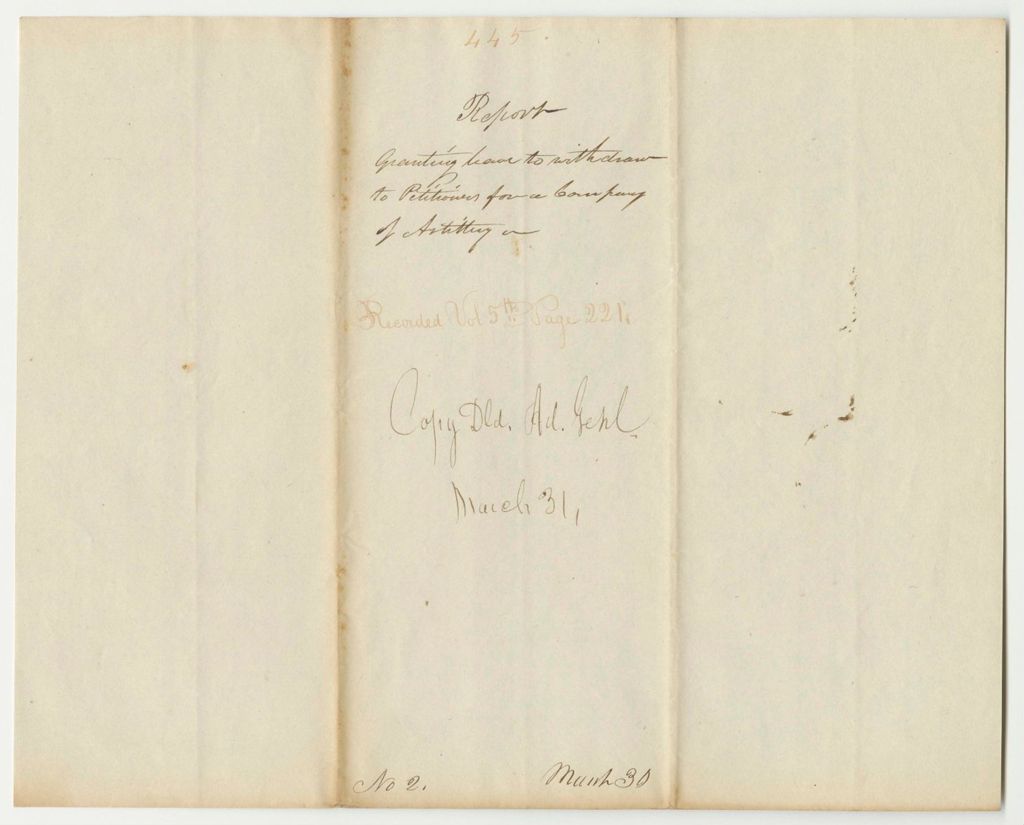 445.
Report
Granting leave to withdraw
to Petitioners for a Company
of Artillery
Recorded Vol 5th Page 221,
Copy Dld. Ad. Genl.
March 31,
No 2. March 30